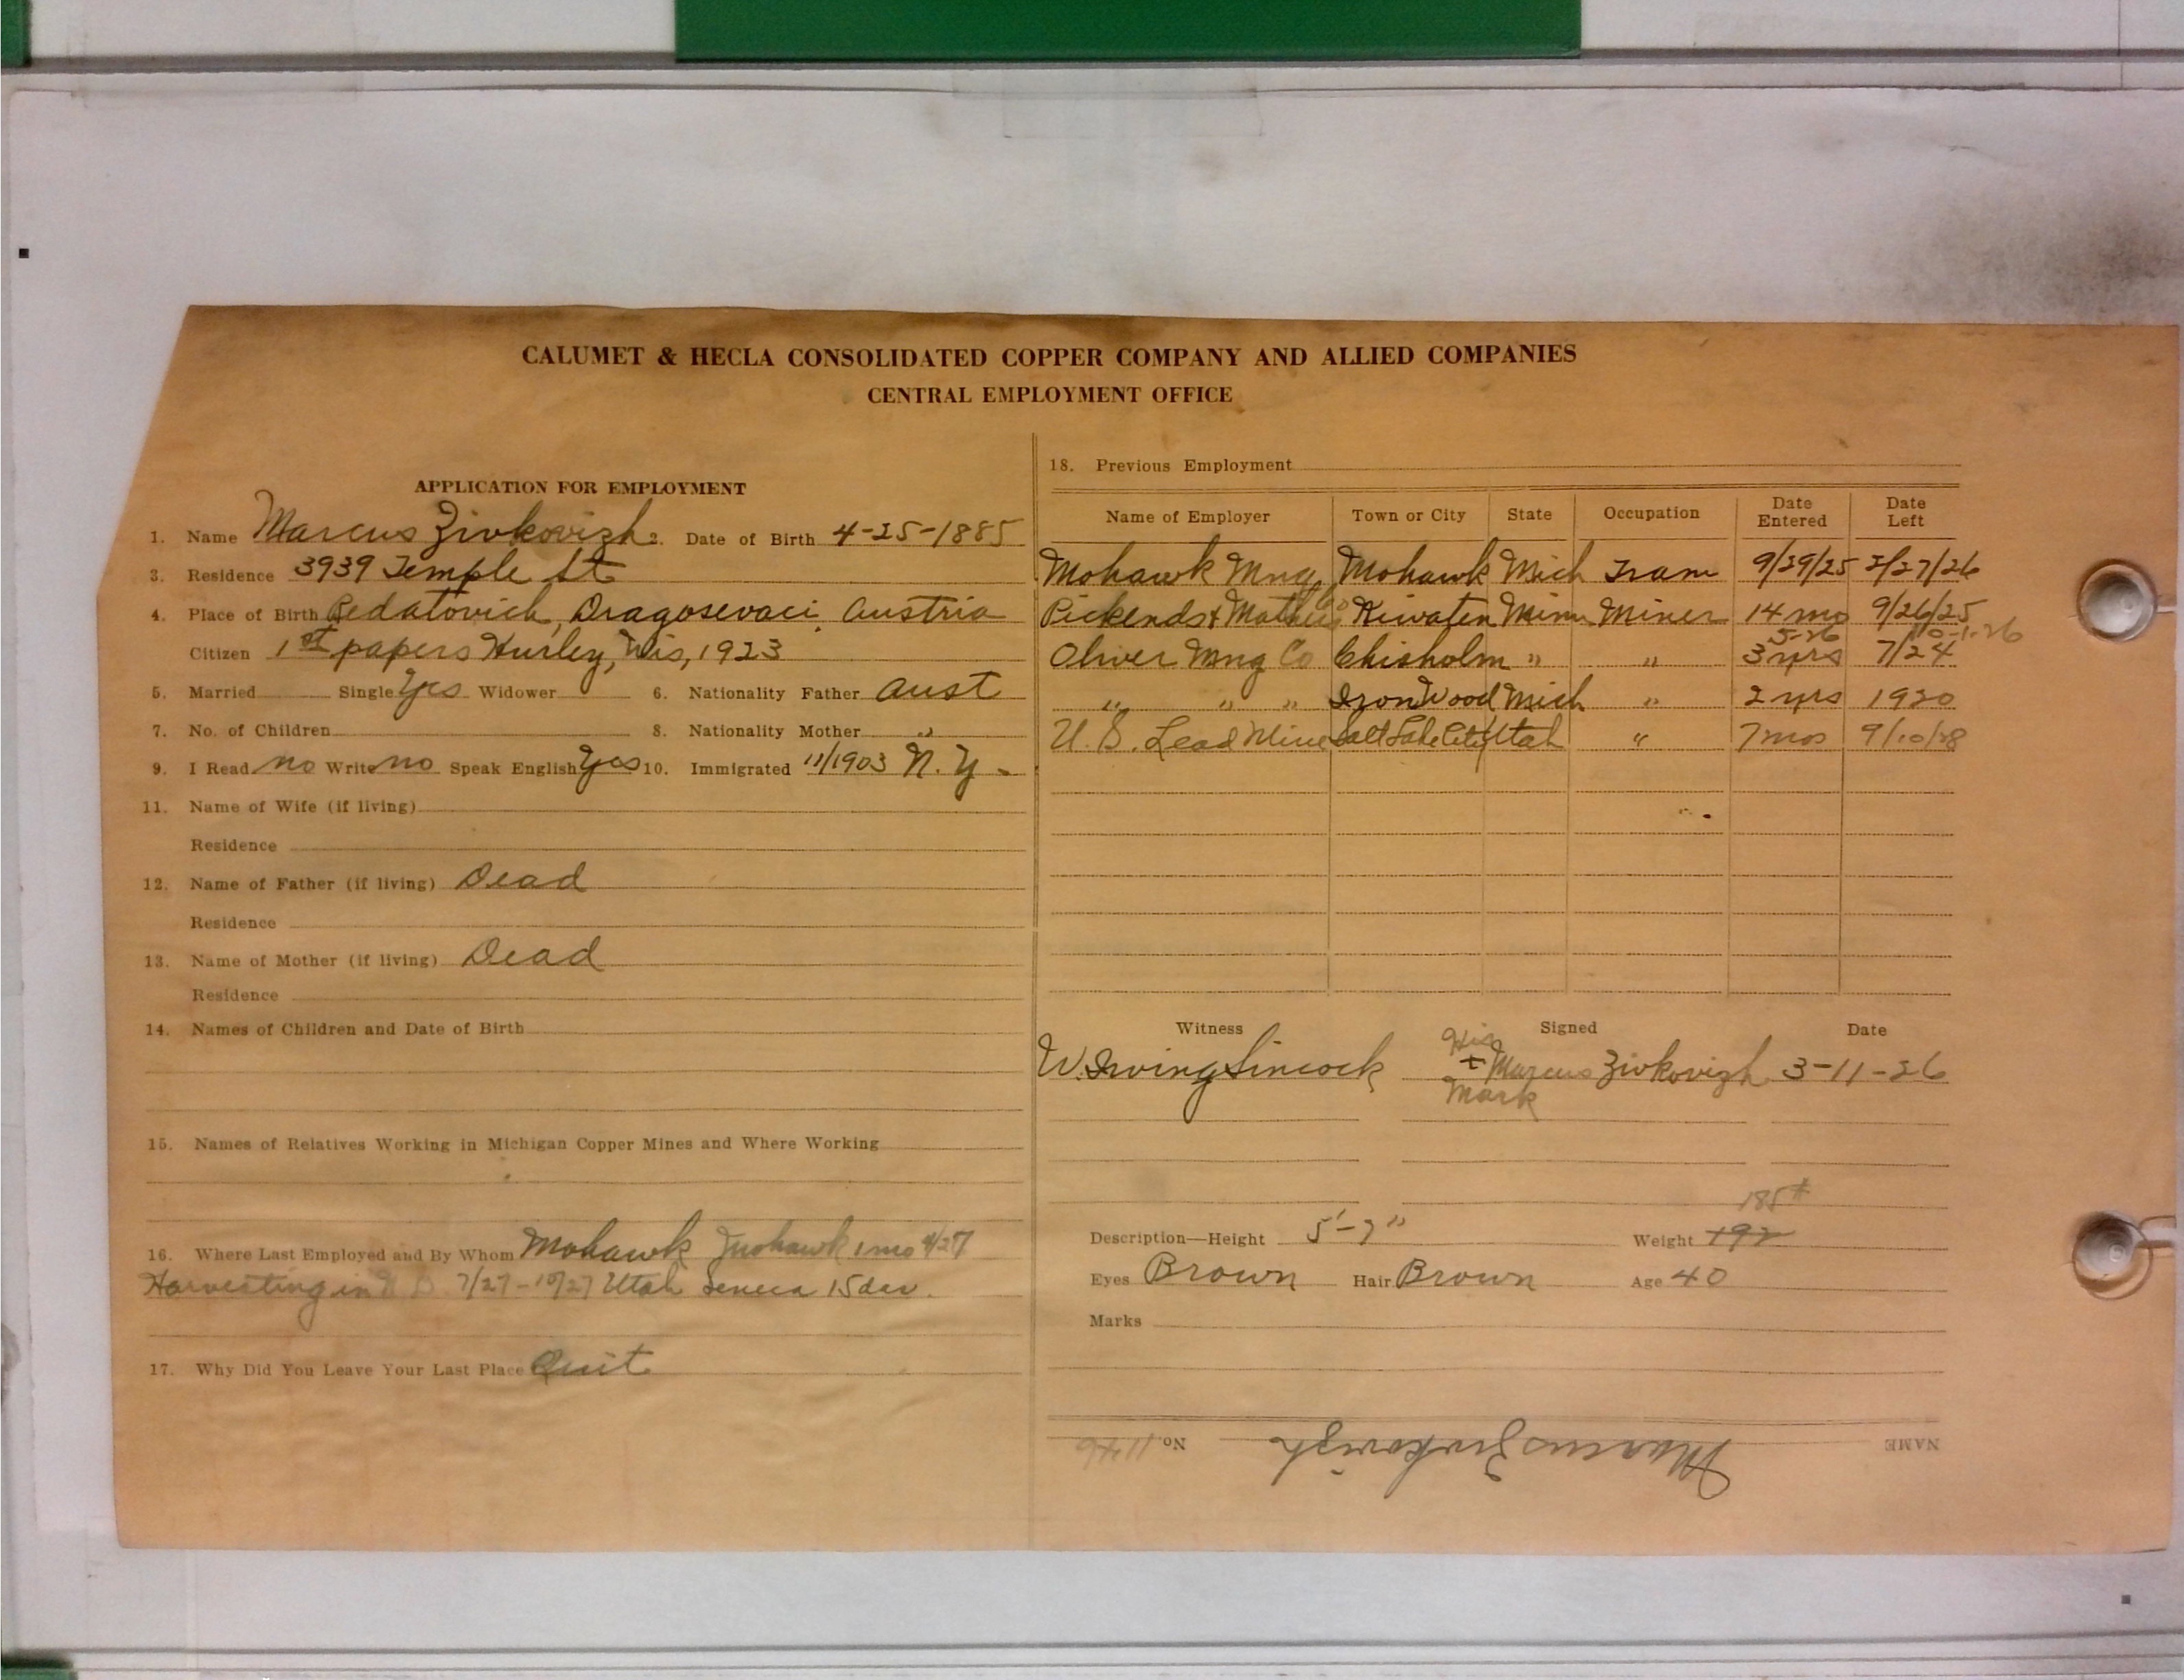 CALUMET & HECLA CONSOLIDATED COPPER COMPANY AND ALLIED COMPANIES
CENTRAL EMPLOYMENT OFFICE
APPLICATION FOR EMPLOYMENT
1. Name Marcus Zivkovizh 2. Date of Birth 4-25-1885
3. Residence 3939 Temple St
4. Place of Birth Redatovich, Dragosevaci Austria
Citizen 1st papers Hurley, Wis, 1923
5. Married Single Yes Widower 6. Nationality Father Aust
7. No. of Children 8. Nationality Mother "
9. I Read no Write no Speak English Yes 10. Immigrated 11/1903 N.Y.
11. Name of Wife (if living)
Residence
12. Name of Father (if living) Dead
Residence
13. Name of Mother (if living) Dead
Residence
14. Names of Children and Date of Birth
15. Names of Relatives Working in Michigan Copper Mines and Where Working
16. Where Last Employed and By Whom Mohawk Mohawk 1 mo 4/27
Harvesting in 7/27-10/27 Utah Seneca 15 day.
17. Why Did You Leave Your Last Place Quit
18. Previous Employment
Name of Employer Town or City State Occupation Date Entered Date Left
Mohawk Mng Co Mohawk Mich Tram 9/29/25 2/27/26
Pickends & Mather Kewaten Minn Miner 14 mo 9/26/25
5-26 10-1-26
Oliver Mng Co Chisholm " " 3 yrs 7/24
" " " IronWood Mich " 2 yrs 1920
U.S. Lead Mine Salt Lake City Utah " 7 mos 9/10/28
Witness Signed Date
His
W. Irving Sincock + Marcus Zivkovizh 3-11-26
Mark
185#
Description—Height 5'-7" Weight 192
Eyes Brown Hair Brown Age 40
Marks
NAME Marcus Zivkovizh No. 1146